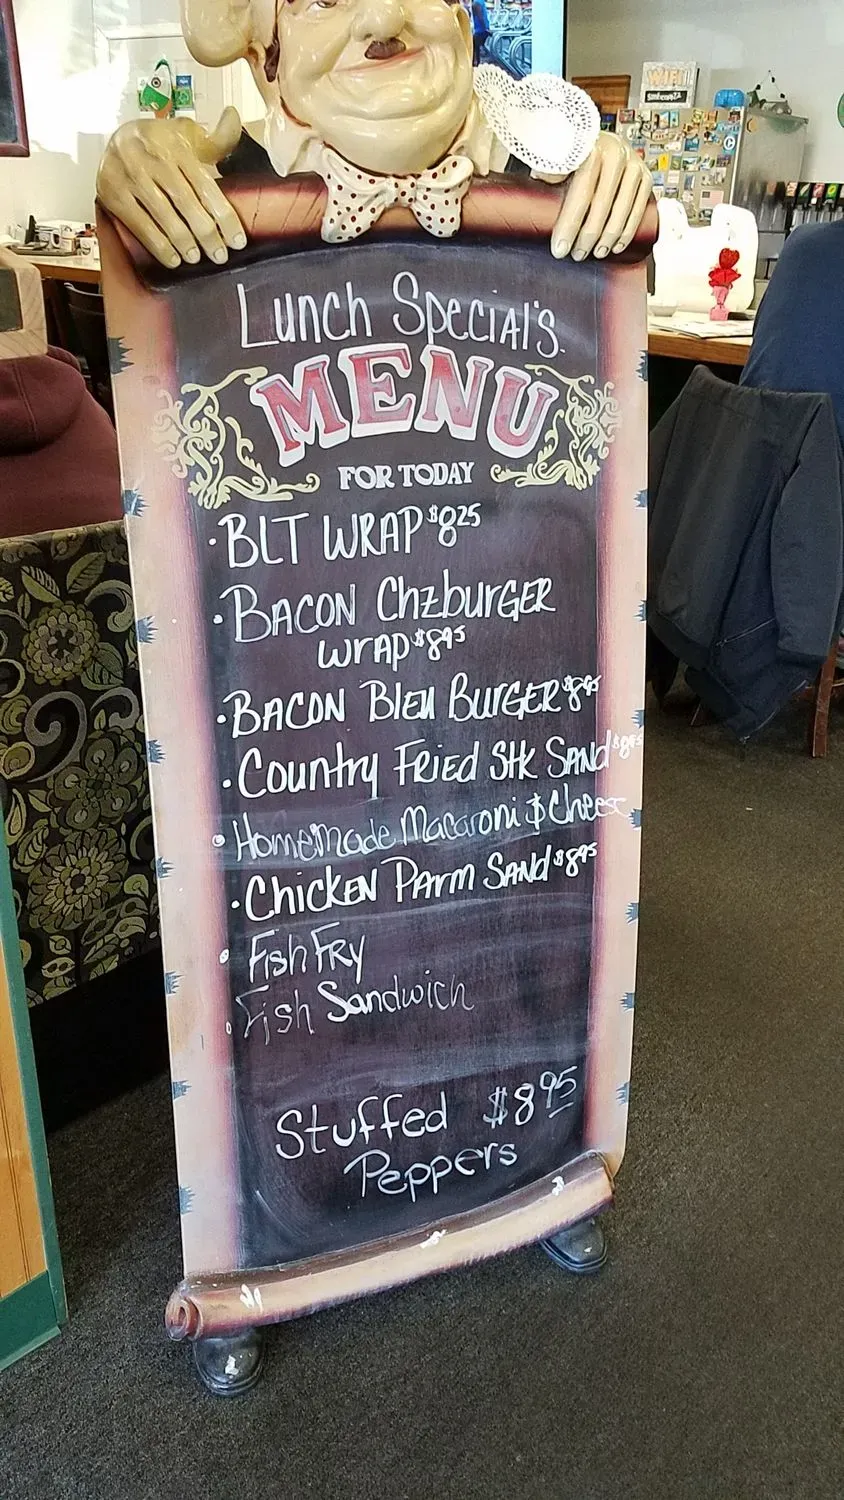 WIFI
Lunch Special's
MENU
FOR TODAY
• BLT WRAP $8.25
• BACON ChzburGER
WrAP $8.95
• BACON Bleu BurGER $8.95
• Country Fried Stk Sand $8.95
• Homemade Macaroni & Cheese
• Chicken Parm Sand $8.95
• Fish Fry
• Fish Sandwich
Stuffed $8.95
Peppers